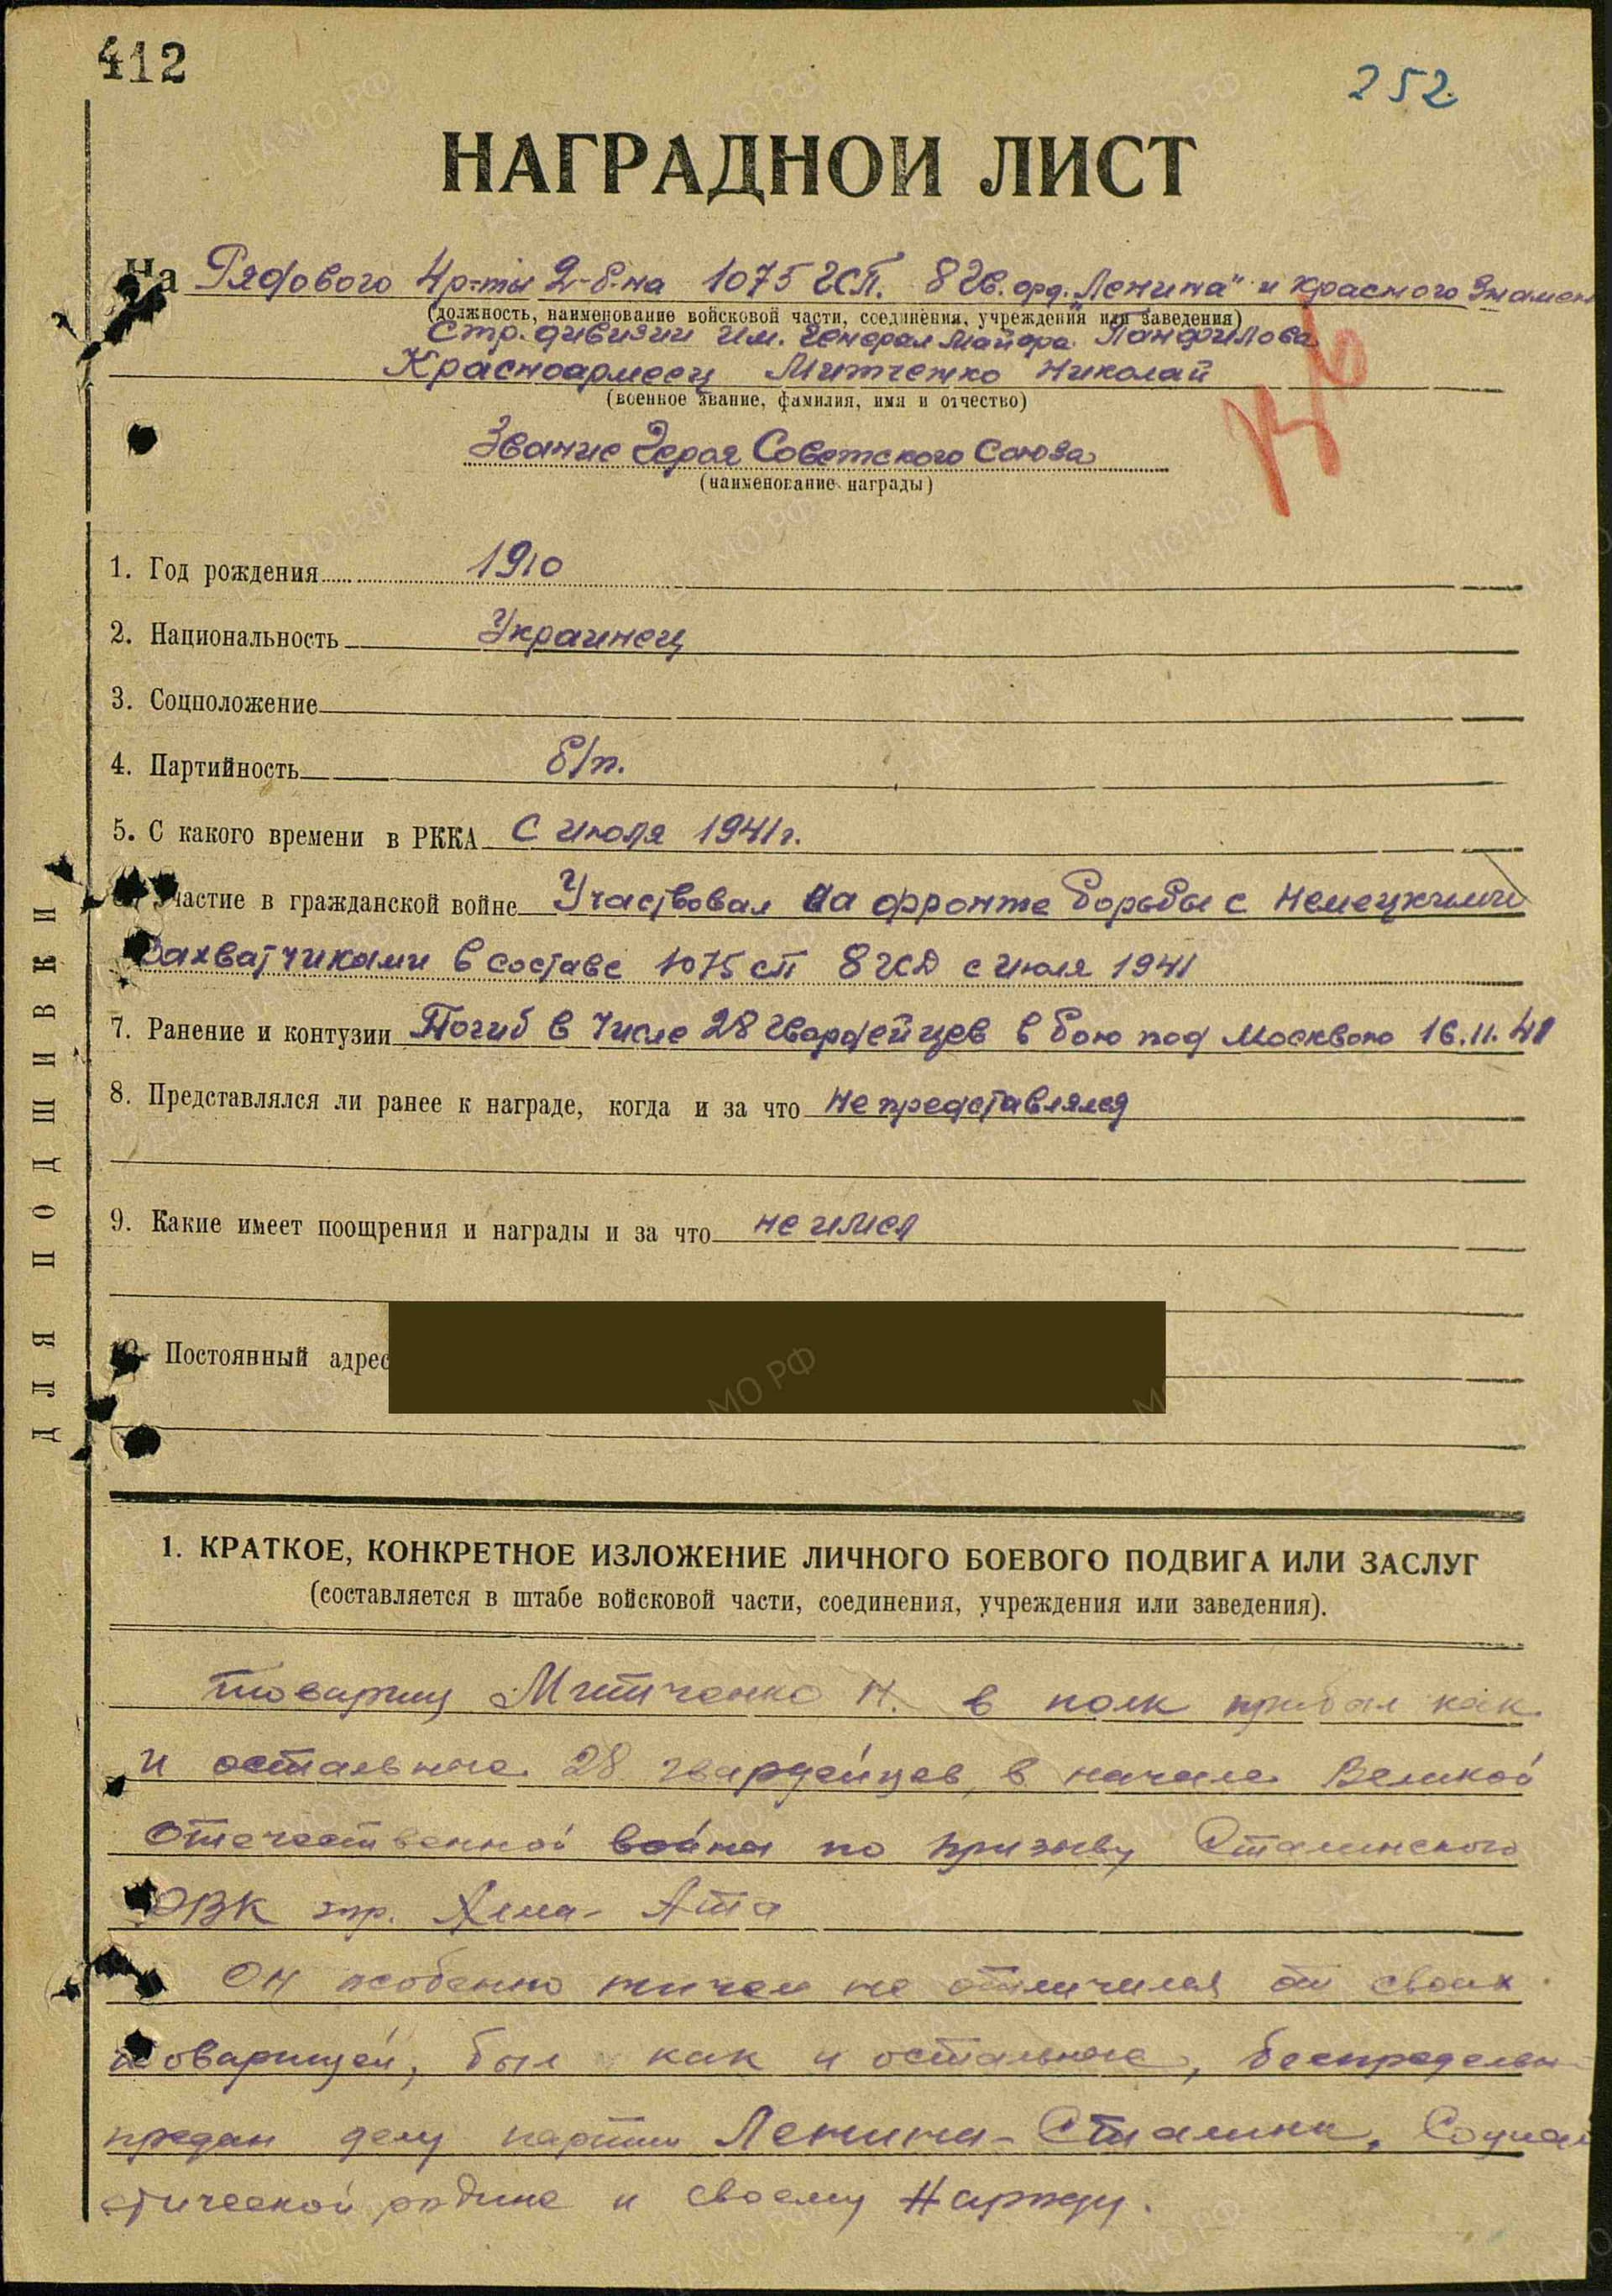 412
252
НАГРАДНОЙ ЛИСТ
На Рядового 4 р-ты 2-б-на 1075 ГСП. 8 Гв. орд. „Ленина" и Красного Знамен
(должность, наименование войсковой части, соединения, учреждения или заведения)
Стр. дивизии им. Генерал Майора Панфилова
Красноармеец Митченко Николай
(военное звание, фамилия, имя и отчество)
Звание Героя Советского Союза
(наименование награды)
1. Год рождения 1910
2. Национальность Украинец
3. Соцположение
4. Партийность б/п.
5. С какого времени в РККА с июля 1941 г.
Участие в гражданской войне Участвовал на фронте борьбы с немецкими
захватчиками в составе 1075 сп 8 ГСД с июля 1941
7. Ранение и контузии Погиб в числе 28 гвардейцев в бою под Москвою 16.11.41
8. Представлялся ли ранее к награде, когда и за что не представлялся
9. Какие имеет поощрения и награды и за что не имел
10. Постоянный адрес
ДЛЯ ПОДШИВКИ
1. КРАТКОЕ, КОНКРЕТНОЕ ИЗЛОЖЕНИЕ ЛИЧНОГО БОЕВОГО ПОДВИГА ИЛИ ЗАСЛУГ
(составляется в штабе войсковой части, соединения, учреждения или заведения).
товарищ Митченко Н. в полк прибыл как
и остальные 28 гвардейцев, в начале Великой
Отечественной войны по призыву Сталинского
РВК гор. Алма-Ата
Он особенно ничем не отличился от своих
товарищей, был как и остальные, беспредельн
предан делу партии Ленина-Сталина, Социали
стической родине и своему Народу.
ЦАМО РФ